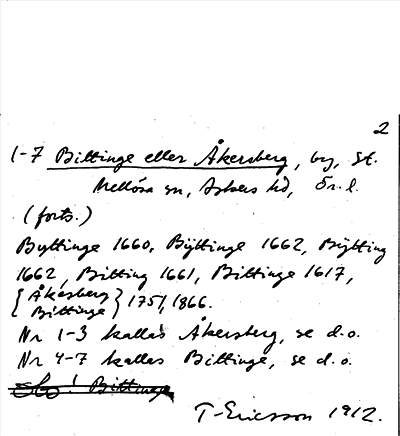 2
1-7 Bittinge eller Åkersberg, by, St.
Mellösa sn, Askers hd, Ör. l.
(forts.)
Byttinge 1660, Bÿttinge 1662, Bÿtting
1662, Bitting 1661, Bittinge 1617,
{Åkesberg
Bittinge} 1751, 1866.
Nr 1-3 kallas Åkersberg, se d.o.
Nr 4-7 kallas Bittinge, se d.o.
Obs! Bittinge
T. Ericsson 1912.